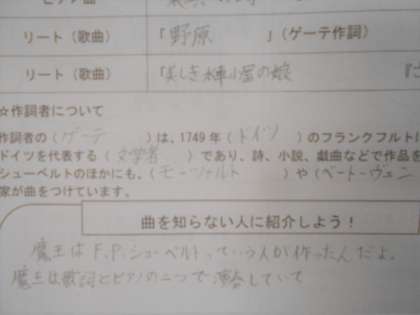 リート（歌曲） 「野原 」（ゲーテ作詞）
リート（歌曲） 「美しき水車小屋の娘
☆作詞者について
作詞者の（ゲーテ ）は、1749 年（ドイツ ）のフランクフルトに
ドイツを代表する（文学者 ）であり、詩、小説、戯曲などで作品を
シューベルトのほかにも、（モーツァルト ）や（ベートーヴェン
家が曲をつけています。
曲を知らない人に紹介しよう！
魔王は F.P.シューベルトっていう人が作ったんだよ。
魔王は歌詞とピアノの二つで演奏していて